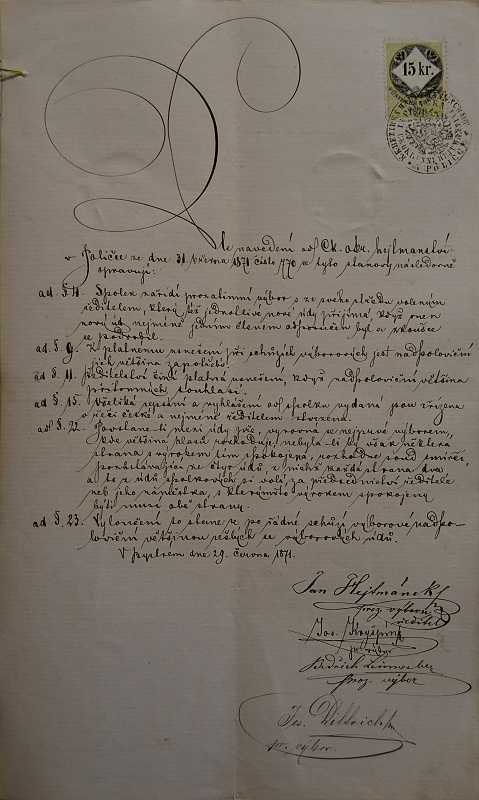 15 kr.
Dle navedení od Ck. okr. hejtmanství
v Poličce ze dne 31 března 1871 číslo 770 se tyto stanovy následovně
opravují:
ad. §. 4. Spolek zařídí prozatímní výbor s ze svého středu voleným
ředitelem, který též jednotlivé nové údy přijímá, když onen
nový úd nejméně jedním členem odporučen byl a zkoušce
se podrobil.
ad. §. 9. K platnému usnešení při schůzích výborových jest nadpoloviční
jich většina zapotřebí.
ad §. 11. ředitelství činí platná usnešení, když nadpoloviční většina
přítomných souhlasí.
ad §. 15. Všeliká vydání a vyhlášení od spolku vydaná jsou zřízena
v řeči české a nejméně ředitelem stvrzena.
ad §. 22. Povstane-li mezi údy pře, vyrovná se nejprvé výborem,
kde většina hlasů rozhoduje, nebyla-li by však některá
strana s výrokem tím spokojena, rozhodne soud smírčí,
pozůstávající ze čtyr údů, z nichž každá strana dva
a to z údů spolkových si volí, za předsednictví ředitele
neb jeho náměstka, s kterýmžto výrokem spokojeny
býti musí obě strany.
ad §. 23. Vyloučení to stane se po řádné schůzi výborové nadpo-
loviční většinou sešlých se výborových údů.
V Bystrém dne 29. června 1871.
Jan Hejtmánek
proz. výboru
ředitel
Jos. Kryšpín
pr. výbor
Bedřich
proz. výbor
Jos. Dittrich
pr. výbor.